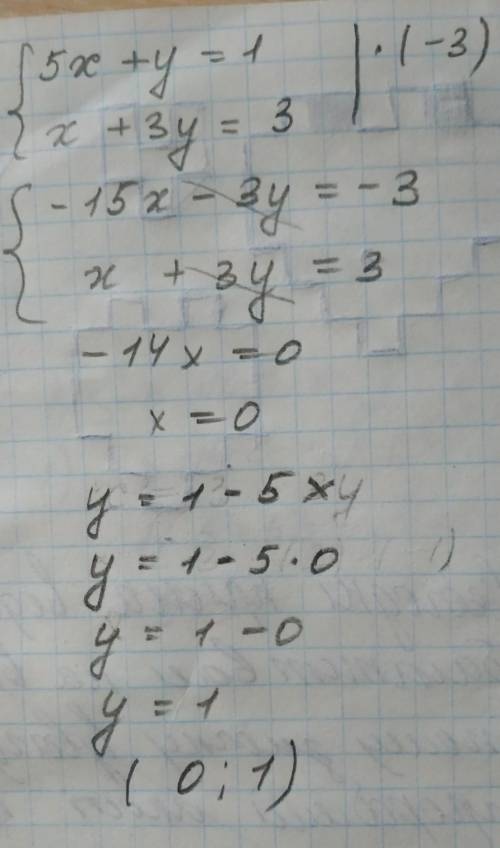 { 5x + y = 1 | · (-3)
x + 3y = 3
{ -15x - 3y = -3
x + 3y = 3
-14x = 0
x = 0
y = 1 - 5x
y = 1 - 5 · 0
y = 1 - 0
y = 1
( 0 ; 1 )